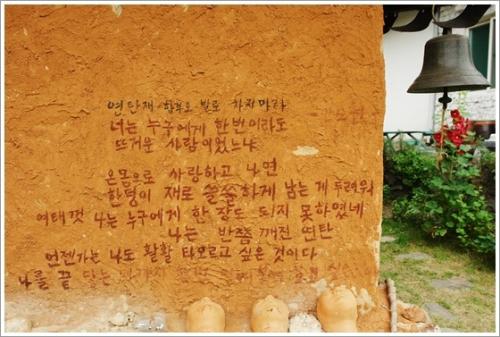 연탄재 함부로 발로 차지마라
너는 누구에게 한번이라도
뜨거운 사람이었느냐
온몸으로 사랑하고 나면
한덩이 재로 쓸쓸하게 남는 게 두려워
여태껏 나는 누구에게 한 장도 되지 못하였네
나는 반쯤 깨진 연탄
언젠가는 나도 활활 타오르고 싶은 것이다
나를 끝 닿는